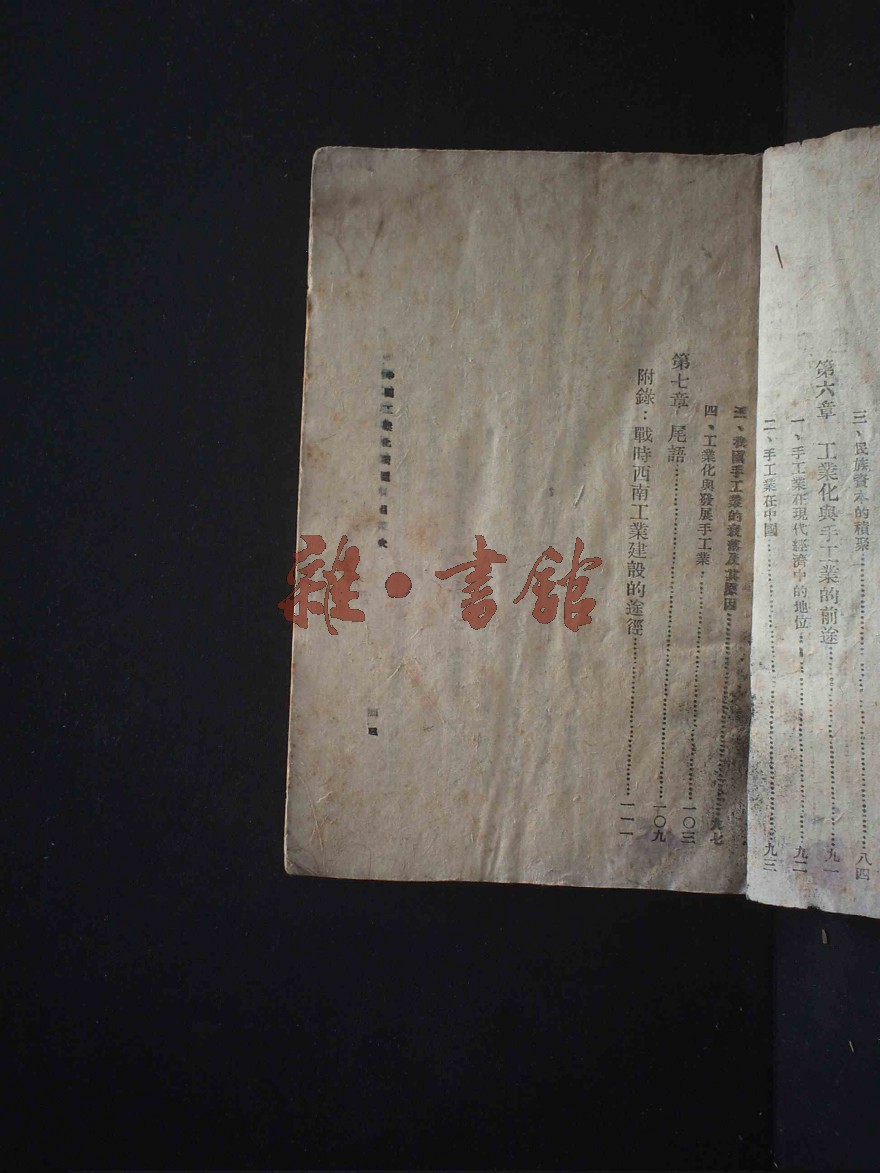 三、民族資本的積聚……八四
第六章　工業化與手工業的前途……九一
一、手工業在現代經濟中的地位……九二
二、手工業在中國……九三
三、我國手工業的衰落及其原因……九七
四、工業化與發展手工業……一〇三
第七章　尾語……一〇九
附錄：戰時西南工業建設的途徑……一一一
雜·書館